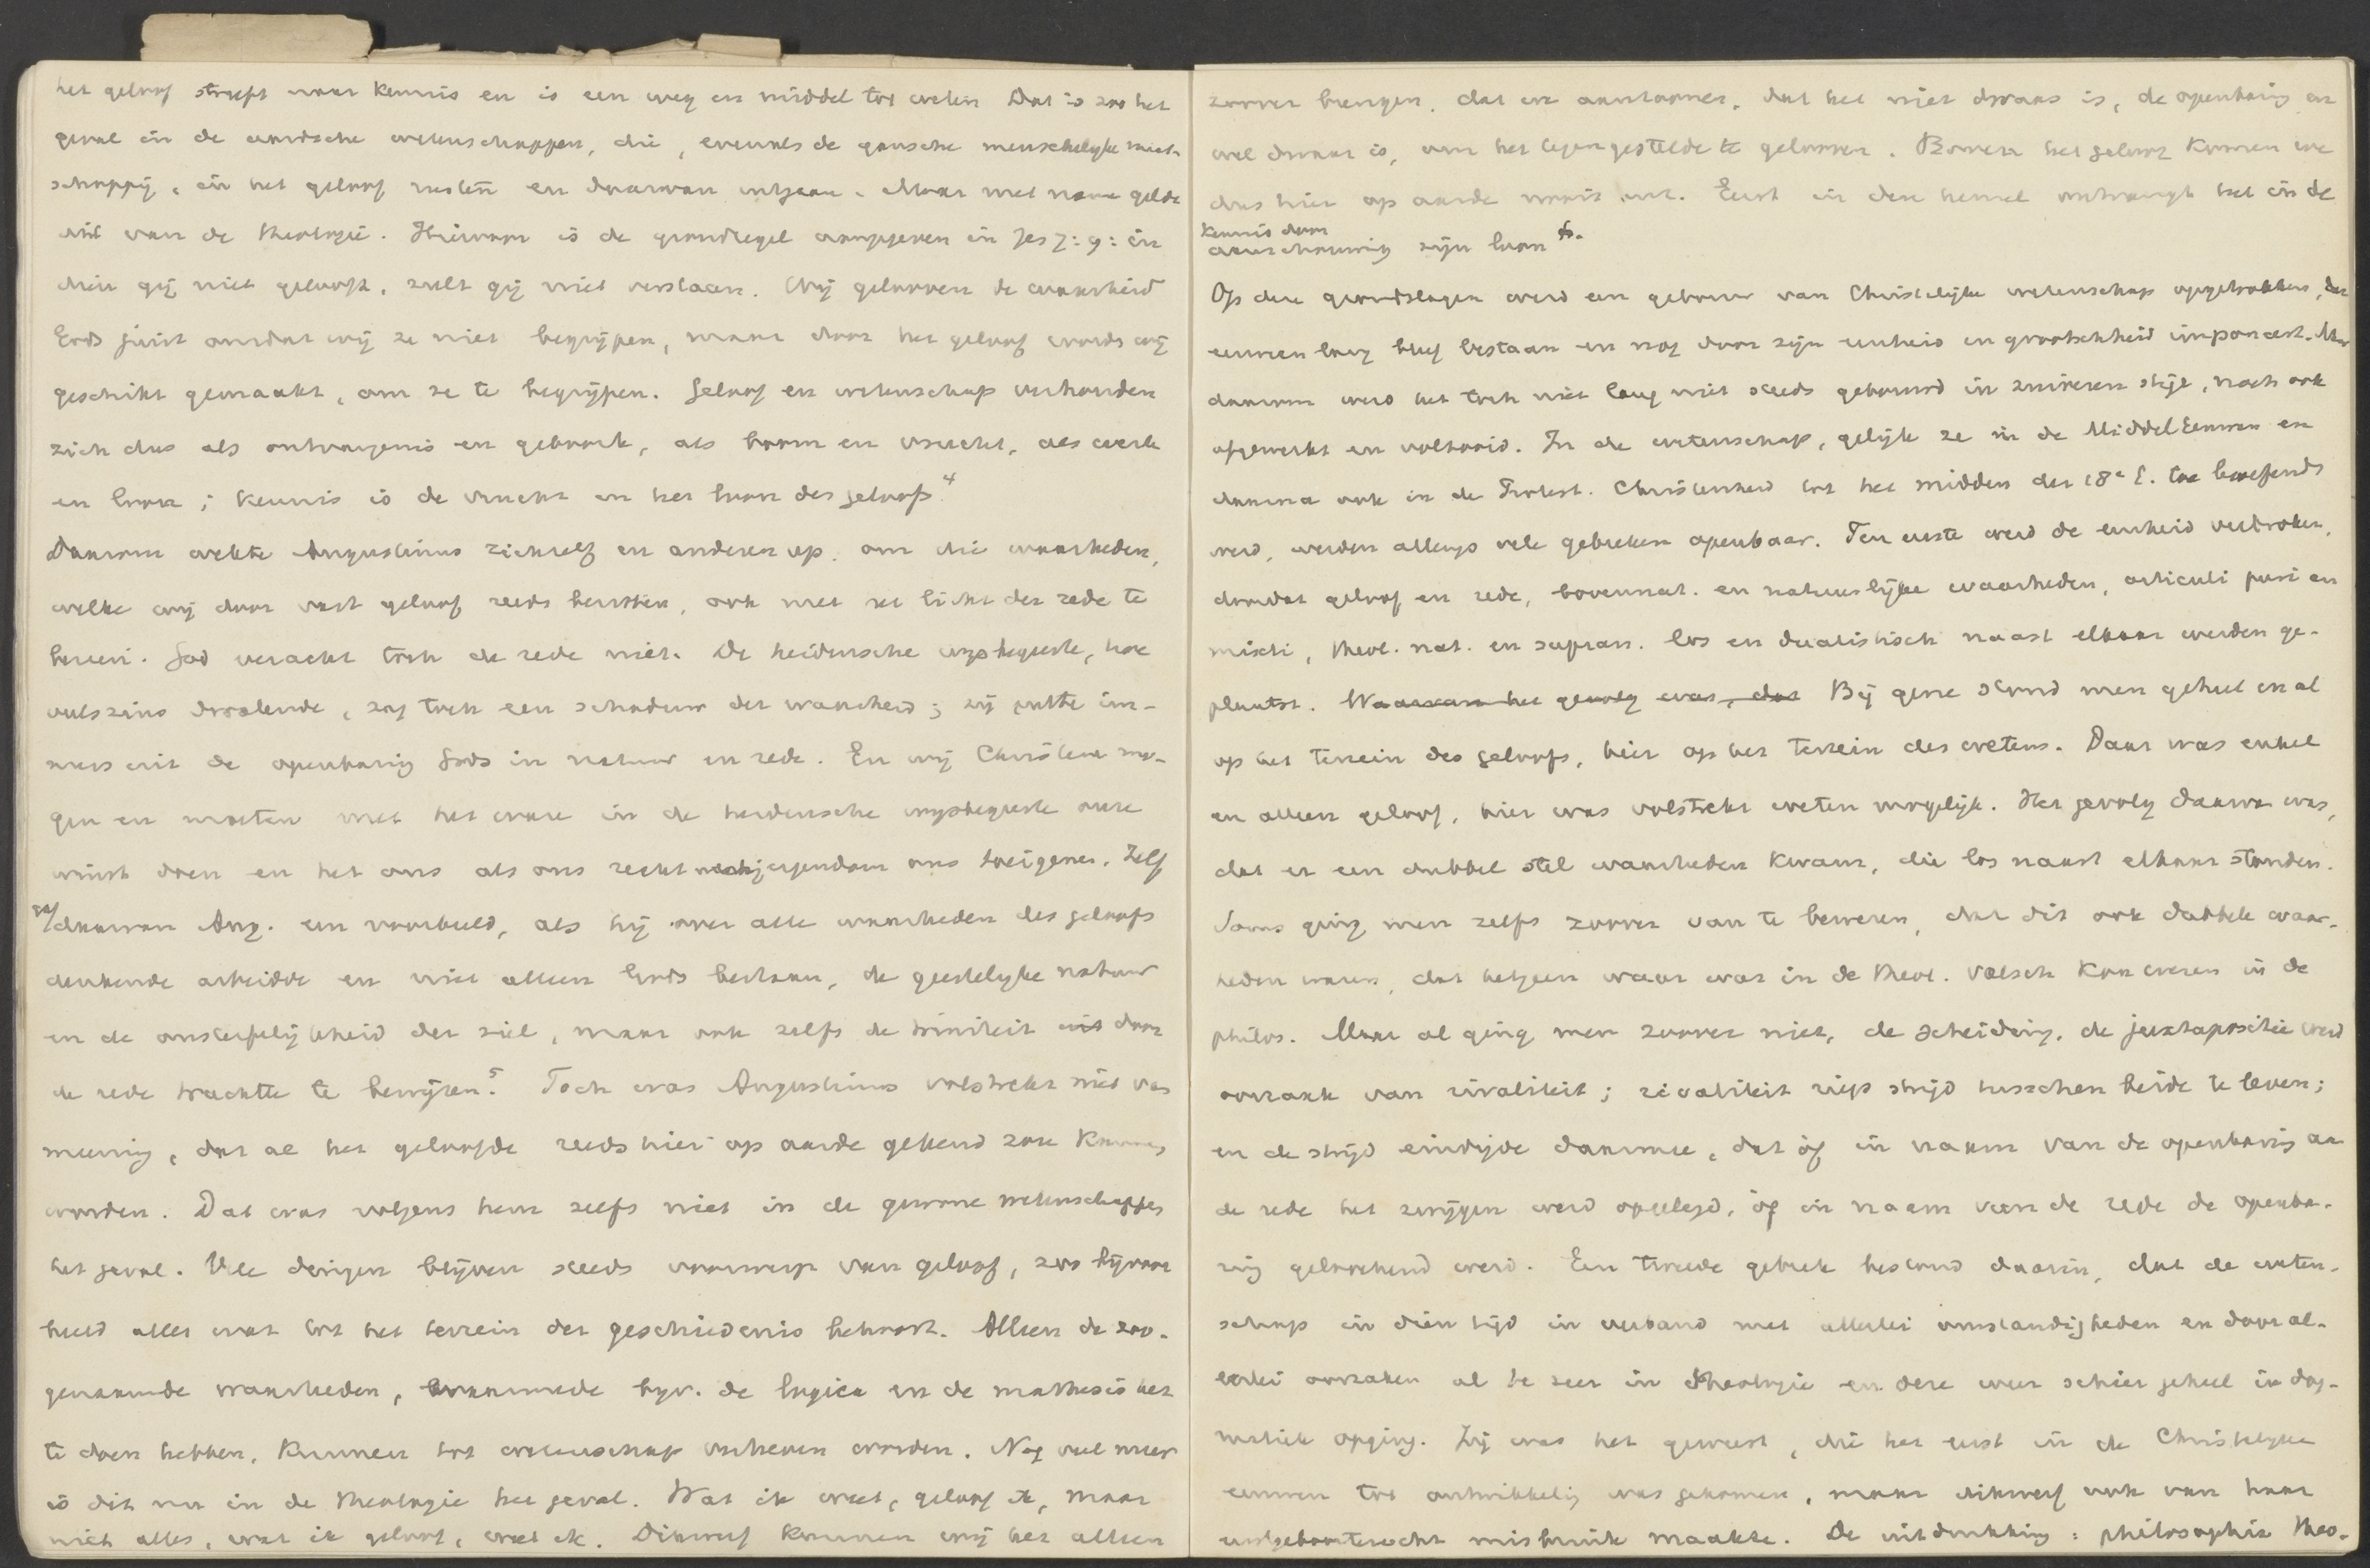 het geloof streeft naar kennis en is een weg en middel tot weten. Dat is zoo het
geval in de aardsche wetenschappen, die, evenals de gansche menschelyke maat-
schappij, in het geloof rusten en daarvan uitgaan. Maar met name geldt
dit van de theologie. Hiervoor is de grondregel aangegeven in Jes 7:9: in-
dien gij niet gelooft, zult gij niet verstaan. Wij gelooven de waarheid
Gods juist omdat wij ze niet begrijpen, maar door het geloof worden wij
geschikt gemaakt, om ze te begrijpen. Geloof en wetenschap verhouden
zich dus als ontvangenis en geboorte, als boom en vrucht, als werk
en loon; kennis is de vrucht en het loon des geloofs.4
Daarom wekte Augustinus zichzelf en anderen op, om die waarheden,
welke wij door vast geloof reeds bezitten, ook met het licht der rede te
bezien. God veracht toch de rede niet. De heidensche wijsbegeerte, hoe
veelszins dwalende, zag toch een schaduw der waarheid; zij putte im-
mers uit de openbaring Gods in natuur en rede. En wij Christenen mo-
gen en moeten met het ware in de heidensche wijsbegeerte onze
winst doen en het ons als ons rechtmatig eigendom ons toeigenen. Zelf
gaf daarvan Aug. een voorbeeld, als hij over alle waarheden des geloofs
denkende arbeidde en niet alleen Gods bestaan, de geestelyke natuur
en de onsterfelijkheid der ziel, maar ook zelfs de triniteit uit door
de rede trachtte te bewijzen.5 Toch was Augustinus volstrekt niet van
meening, dat al het geloofde reeds hier op aarde gekend zou kunnen
worden. Dat was volgens hem zelfs niet in de gewone wetenschappen
het geval. Vele dingen blijven steeds voorwerp van geloof, zoo bijvoor-
beeld alles wat tot het terrein der geschiedenis behoort. Alleen de zoo-
genaamde waarheden, waarmede bijv. de logica en de mathesis het
te doen hebben, kunnen tot wetenschap verheven worden. Nog veel meer
is dit nu in de theologie het geval. Wat ik weet, geloof ik, maar
niet alles, wat ik geloof, weet ik. Dikwerf kunnen wij het alleen
zoover brengen, dat we aantoonen, dat het niet dwaas is, de openbaring en
wel dwaas is, om het tegengestelde te gelooven. Boven het geloof komen we
dus hier op aarde nooit uit. Eerst in den hemel ontvangt het in de
kennis door
aanschouwing zijn loon 6.
Op deze grondslagen werd een gebouw van Christelijke wetenschap opgetrokken, dat
eeuwen lang bleef bestaan en nog door zijn eenheid en grootschheid imponeert. Maar
daarom werd het toch niet lang niet steeds gebouwd in zuiveren stijl, noch ook
afgewerkt en voltooid. In de wetenschap, gelijk ze in de Middel Eeuwen en
daarna ook in de Protest. Christenheid tot het midden der 18e E. toe beoefend
werd, werden allengs vele gebreken openbaar. Ten eerste werd de eenheid verbroken,
doordat geloof en rede, bovennat. en natuurlijke waarheden, articuli puri en
mixti, theol. nat. en supran. los en dualistisch naast elkaar werden ge-
plaatst. Waarvan het gevolg was, dat Bij gene stond men geheel en al
op het terrein des geloofs, hier op het terrein des wetens. Daar was enkel
en alleen geloof, hier was volstrekt weten mogelijk. Het gevolg daarvan was,
dat er een dubbel stel waarheden kwam, die los naast elkaar stonden.
Soms ging men zelfs zoover van te beweren, dat dit ook dubbele waar-
heden waren, dat hetgeen waar was in de theol. valsch kon wezen in de
philos. Maar al ging men zoover niet, de scheiding, de juxtapositie werd
oorzaak van rivaliteit; rivaliteit riep strijd tusschen beide te leven;
en de strijd eindigde daarmee, dat òf in naam van de openbaring aan
de rede het zwijgen werd opgelegd, òf in naam van de rede de openba-
ring geloochend werd. Een tweede gebrek bestond daarin, dat de weten-
schap in dien tijd in verband met allerlei omstandigheden en door al-
lerlei oorzaken al te zeer in theologie en deze weer schier geheel in dog-
matiek opging. Zij was het geweest, die het eerst in de Christelyke
eeuwen tot ontwikkeling was gekomen, maar dikwerf ook van haar
eerstgeboorterecht misbruik maakte. De uitdrukking: philosophia theo-